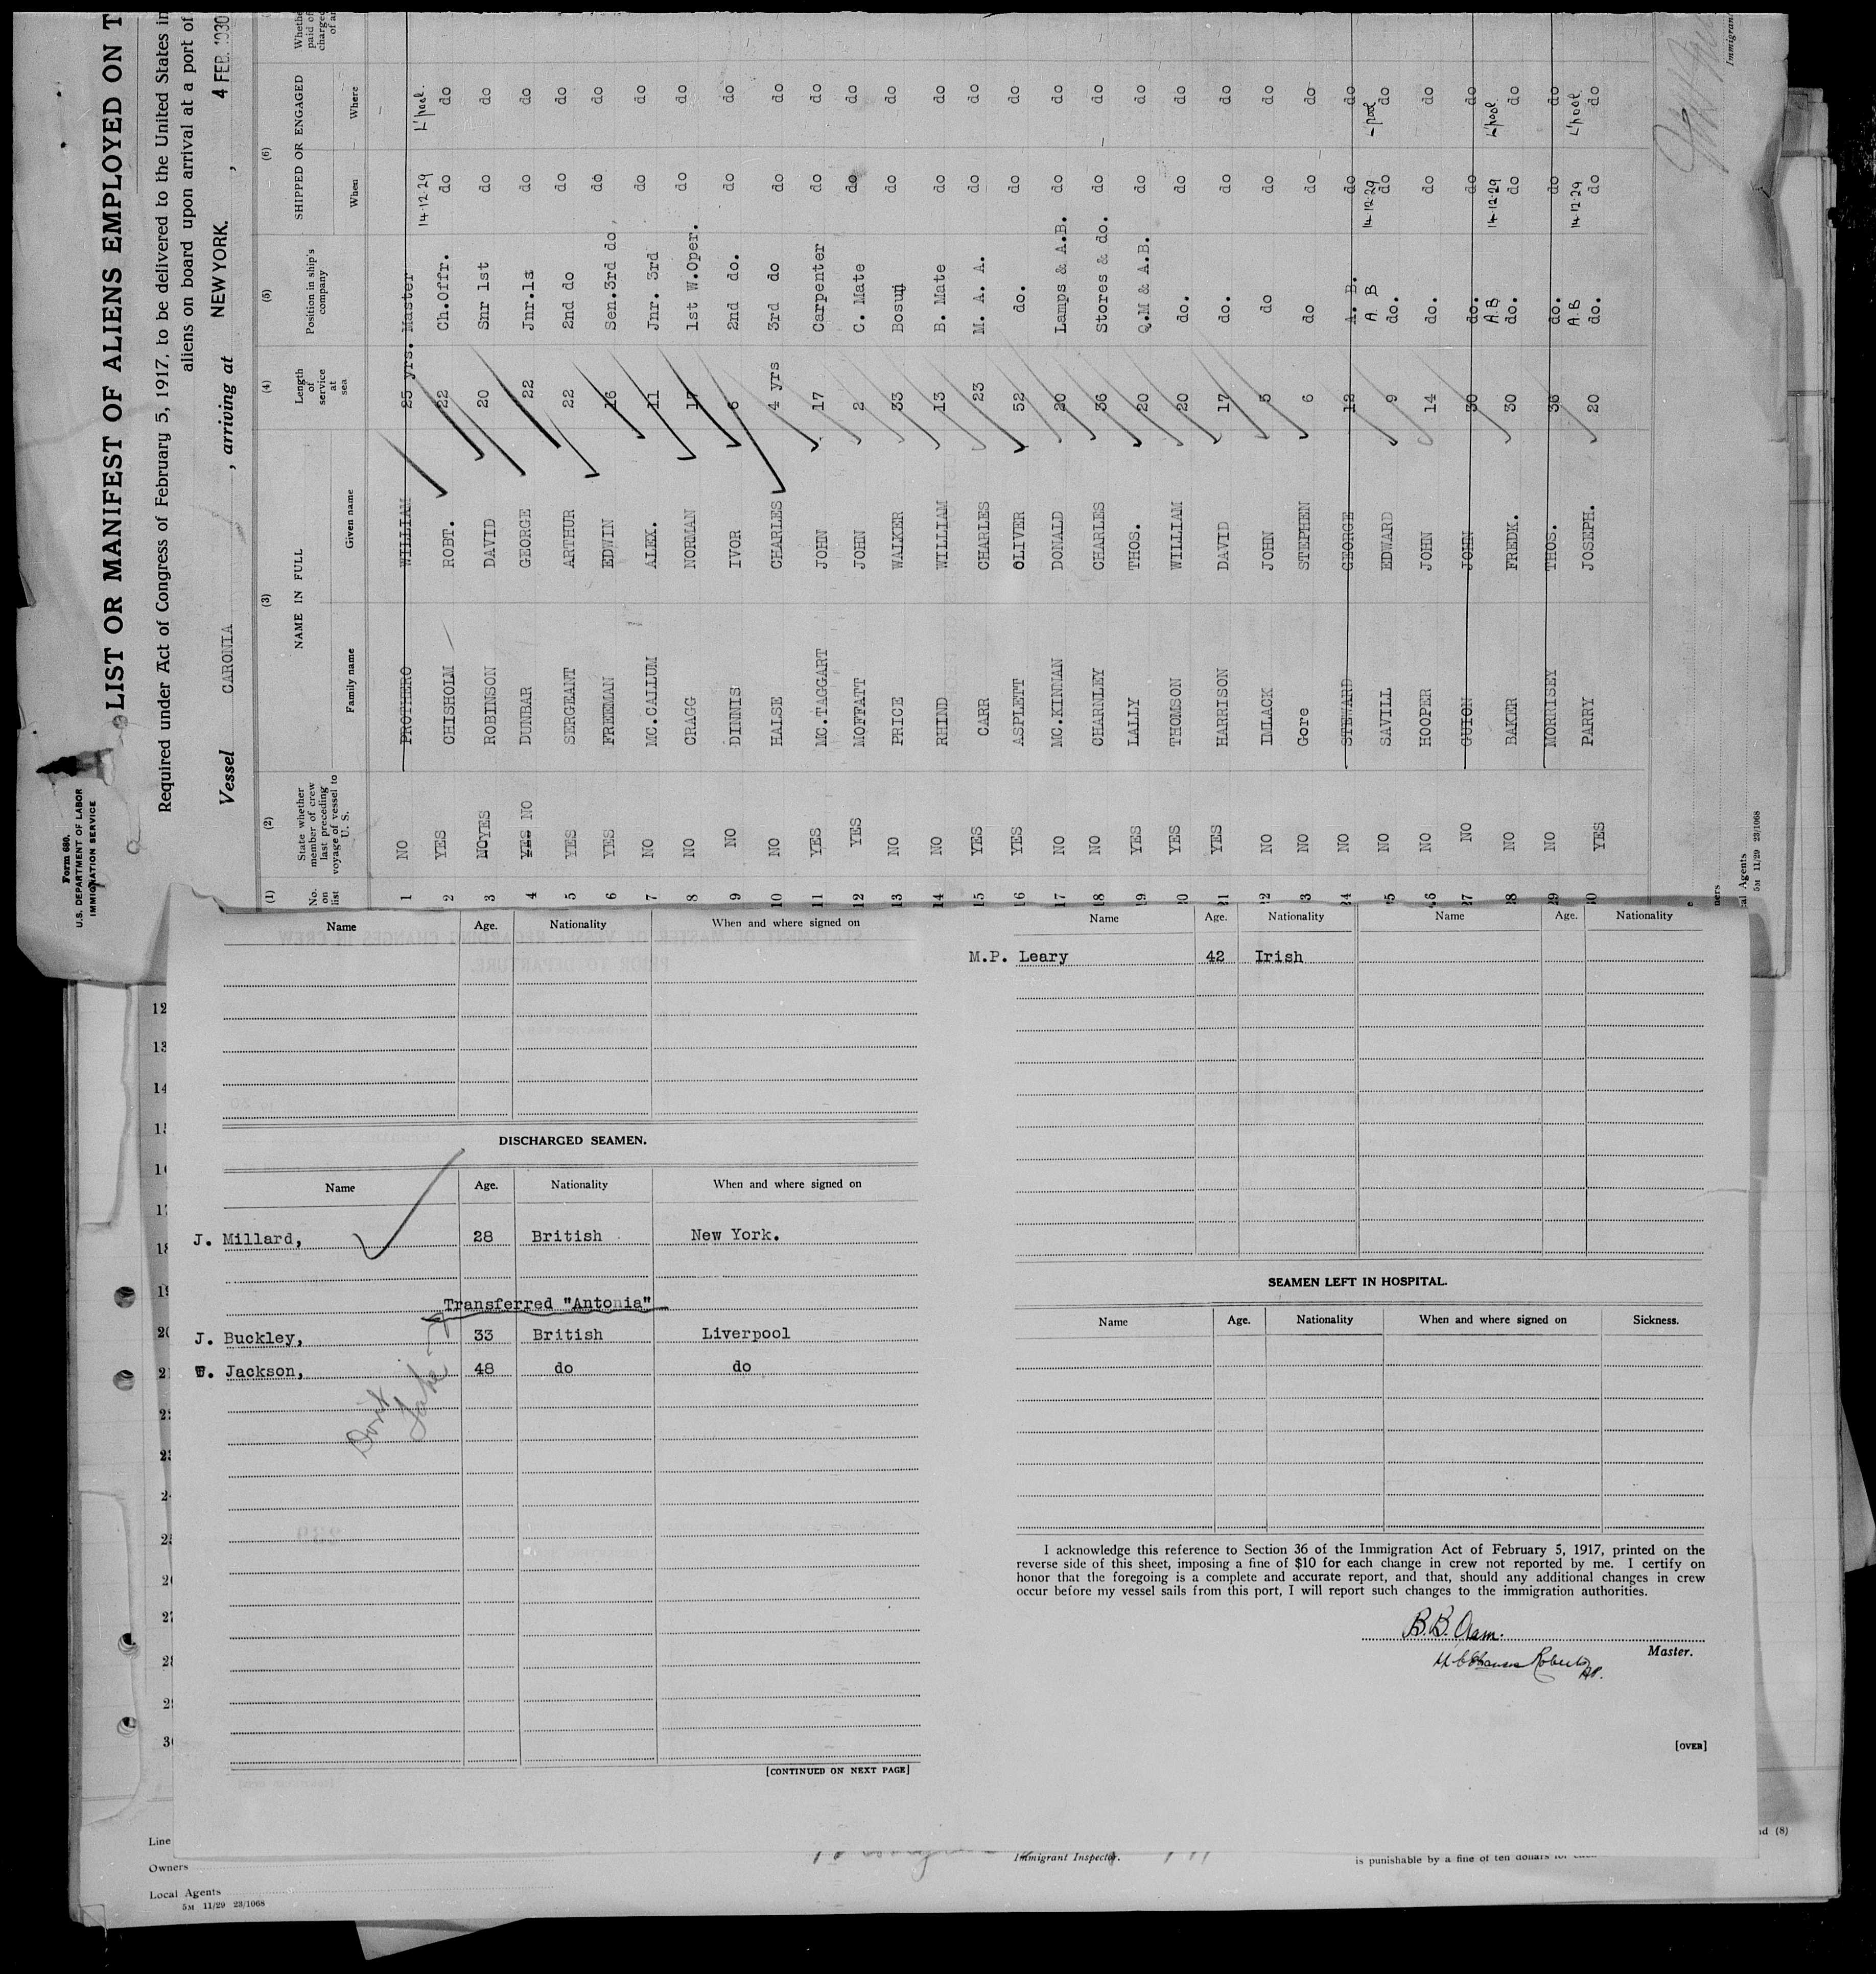 Form 680.
U.S. DEPARTMENT OF LABOR
IMMIGRATION SERVICE
LIST OR MANIFEST OF ALIENS EMPLOYED ON T
Required under Act of Congress of February 5, 1917, to be delivered to the United States in
aliens on board upon arrival at a port of
Vessel CARONIA, arriving at NEW YORK. , 4 FEB. 1930
(1) (2) (3) (4) (5) (6)
No. on list State whether member of crew last preceding voyage of vessel to U. S. NAME IN FULL Length of service at sea Position in ship's company SHIPPED OR ENGAGED
Family name Given name When Where
1 NO PROTHERO WILLIAM 25 yrs. Master
2 YES CHISHOLM ROBT. 22 Ch.Offr. 14-12-29 L'pool.
do do
3 NO YES ROBINSON DAVID 20 Snr 1st do do
4 YES NO DUNBAR GEORGE 22 Jnr.1s do do
5 YES SERGEANT ARTHUR 22 2nd do do do
6 YES FREEMAN EDWIN 16 Sen.3rd do, do do
7 NO MC.CALLUM ALEX. 11 Jnr. 3rd do do
8 NO CRAGG NORMAN 17 1st W.Oper. do do
9 NO DINNIS IVOR 6 2nd do. do do
10 NO HALSE CHARLES 4 yrs 3rd do do do
11 YES MC.TAGGART JOHN 17 Carpenter do do
12 YES MOFFATT JOHN 2 C. Mate do do
13 NO PRICE WALKER 33 Bosun do do
14 NO RHIND WILLIAM 13 B. Mate do do
15 YES CARR CHARLES 23 M. A. A. do do
16 YES ASPLETT OLIVER 52 do. do do
17 NO MC.KINNAN DONALD 20 Lamps & A.B. do do
18 NO CHARNLEY CHARLES 36 Stores & do. do do
19 YES LALLY THOS. 20 Q.M & A.B. do do
20 YES THOMSON WILLIAM 20 do. do do
21 YES HARRISON DAVID 17 do. do do
22 NO IMLACK JOHN 5 do do do
23 NO Gore STEPHEN 6 do do do
24 NO STEWARD GEORGE 12 A. B. do do
A B 14-12-29 L'pool
25 NO SAVILL EDWARD 9 do. do do
26 NO HOOPER JOHN 14 do. do do
27 NO GUION JOHN 30 do. do do
A.B 14-12-29 L'pool
28 NO BAKER FREDK. 30 do. do do
29 NO MORRISEY THOS. 36 do. do do
A.B 14-12-29 L'pool
30 YES PARRY JOSEPH. 20 do. do do
5M 11/29 23/1068
Name Age. Nationality When and where signed on
DISCHARGED SEAMEN.
Name Age. Nationality When and where signed on
J. Millard, 28 British New York.
Transferred "Antonia"
J. Buckley, 33 British Liverpool
Jackson, 48 do do
Don't
take
[CONTINUED ON NEXT PAGE]
Name Age. Nationality Name Age. Nationality
M.P. Leary 42 Irish
SEAMEN LEFT IN HOSPITAL.
Name Age. Nationality When and where signed on Sickness.
I acknowledge this reference to Section 36 of the Immigration Act of February 5, 1917, printed on the
reverse side of this sheet, imposing a fine of $10 for each change in crew not reported by me. I certify on
honor that the foregoing is a complete and accurate report, and that, should any additional changes in crew
occur before my vessel sails from this port, I will report such changes to the immigration authorities.
Master.
[OVER]
12
13
14
Line
Owners
Local Agents
5M 11/29 23/1068
Immigrant Inspector.
is punishable by a fine of ten dollars for